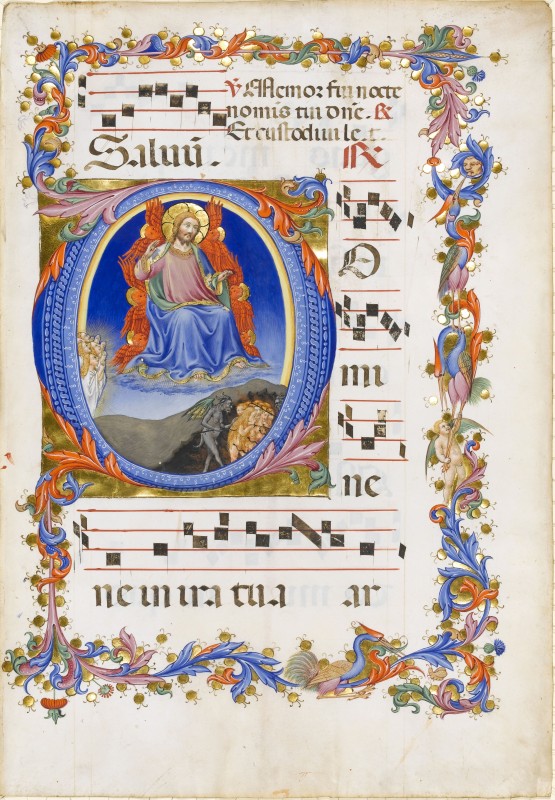 ℣ Memor fui nocte
nominis tui dñe. ℟
Et custodiui le. t.
Saluũ. ℟
O
mi
ne
ne in ira tua ar